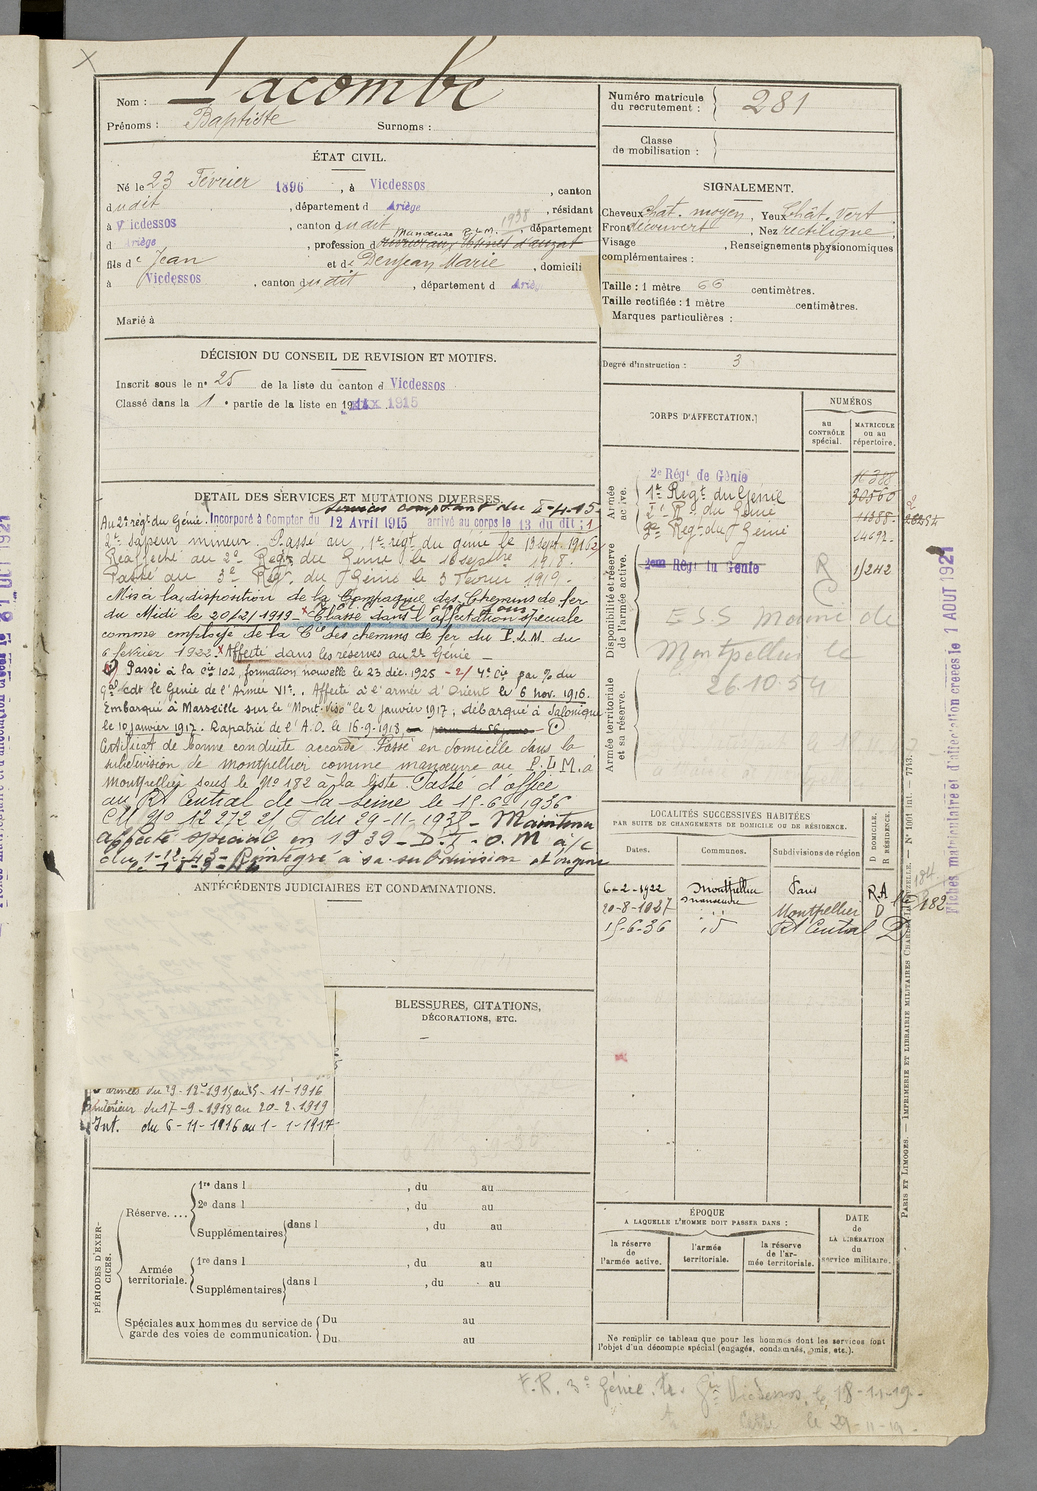 Nom : Lacombe
Prénoms : Baptiste Surnoms :
Numéro matricule du recrutement : 281
Classe de mobilisation :
ÉTAT CIVIL.
Né le 23 Février 1896, à Vicdessos, canton
dudit, département d Ariège, résidant
à Vicdessos, canton dudit 1938, département
d Ariège, profession d manœuvre P.L.M.
fils de Jean et de Denjean Marie, domicili
à Vicdessos, canton dudit, département d Ariège
Marié à
SIGNALEMENT.
Cheveux chât. moyen, Yeux chât. vert
Front découvert, Nez rectiligne,
Visage , Renseignements physionomiques
complémentaires :
Taille : 1 mètre 66 centimètres.
Taille rectifiée : 1 mètre centimètres.
Marques particulières :
Degré d'instruction : 3
DÉCISION DU CONSEIL DE REVISION ET MOTIFS.
Inscrit sous le n° 25 de la liste du canton d Vicdessos
Classé dans la 1e partie de la liste en 1915
DETAIL DES SERVICES ET MUTATIONS DIVERSES.
services comptant du
Au 2e régt du Génie. Incorporé à Compter du 12 Avril 1915 arrivé au corps le 13 du dit ;
2e sapeur mineur. Passé au 1er régt du génie le 13 sept. 1915
Réaffecté au 2e Régt du Génie le 16 septbre 1918.
Passé au 3e Régt du Génie le 3 Février 1919.
Mis à la disposition de la Compagnie des Chemins de fer
du Midi le 20/2/1919 - Classé dans l'affectation spéciale
comme employé de la Cie des chemins de fer du P.L.M. du
6 février 1922. Affecté dans les réserves au 2e Génie
Passé à la Cie 102, formation nouvelle le 23 déc. 1925 - 2/ 4e Cie par % du
Gal Cdt le Génie de l'Armée VIe. Affecté à l'armée d'Orient le 6 nov. 1916.
Embarqué à Marseille sur le "Mont-Viso" le 2 janvier 1917, débarqué à Salonique
le 10 janvier 1917. Rapatrié de l'A.O. le 16-9-1918,
Certificat de bonne conduite accordé. Passé en domicile dans la
subdivision de Montpellier comme manœuvre au P.L.M. à
Montpellier sous le No 182 à la liste. Passé d'office
au Rt Central de la Seine le 15-6-1936
CM No 12272 du 29-11-1937 - Maintenu
affecté spécial en 1939 - D.F.-O.M à/c
du 1-12-43 - Réintégré à sa subdivision d'origine
CORPS D'AFFECTATION.
NUMÉROS
AU CONTRÔLE spécial.
MATRICULE OU AU répertoire.
Armée active.
2e Régt de Génie
1er Régt du Génie
2e Rgt du Génie 11388
3e Régt du Génie 24692
Disponibilité et réserve de l'armée active.
2eme Régt du Génie R 1/242
E.S.S Monné de
Montpellier le
26.10.54
Armée territoriale et sa réserve.
LOCALITÉS SUCCESSIVES HABITÉES
PAR SUITE DE CHANGEMENTS DE DOMICILE OU DE RÉSIDENCE.
Dates. Communes. Subdivisions de région D DOMICILE. R RÉSIDENCE.
6-2-1922 Montpellier manœuvre Paris R.A
20-8-1927 id Montpellier D No 182
15-6-36 id Rt Central D
184
ANTÉCÉDENTS JUDICIAIRES ET CONDAMNATIONS.
BLESSURES, CITATIONS,
DÉCORATIONS, ETC.
armées du 29-12-1915 au 5-11-1916
Intérieur du 17-9-1918 au 20-2-1919
Int. du 6-11-1916 au 1-1-1917
PÉRIODES D'EXERCICES.
Réserve....
1re dans l , du au
2e dans l , du au
Supplémentaires dans l , du au
Armée territoriale.
1re dans l , du au
Supplémentaires dans l , du au
Spéciales aux hommes du service de garde des voies de communication.
Du au
Du au
ÉPOQUE
A LAQUELLE L'HOMME DOIT PASSER DANS :
la réserve de l'armée active.
l'armée territoriale.
la réserve de l'armée territoriale.
DATE de LA LIBÉRATION du service militaire.
Ne remplir ce tableau que pour les hommes dont les services font
l'objet d'un décompte spécial (engagés, condamnés, omis, etc.).
F.R. 3e Génie. Gie Vicdessos, le 18-11-19.
le 29-11-19.
PARIS ET LIMOGES. — IMPRIMERIE ET LIBRAIRIE MILITAIRES CHARLES-LAVAUZELLE. — N° 1001 int. — 7713.
Fiches matriculaire et d'affectation créées le 1 AOUT 1921